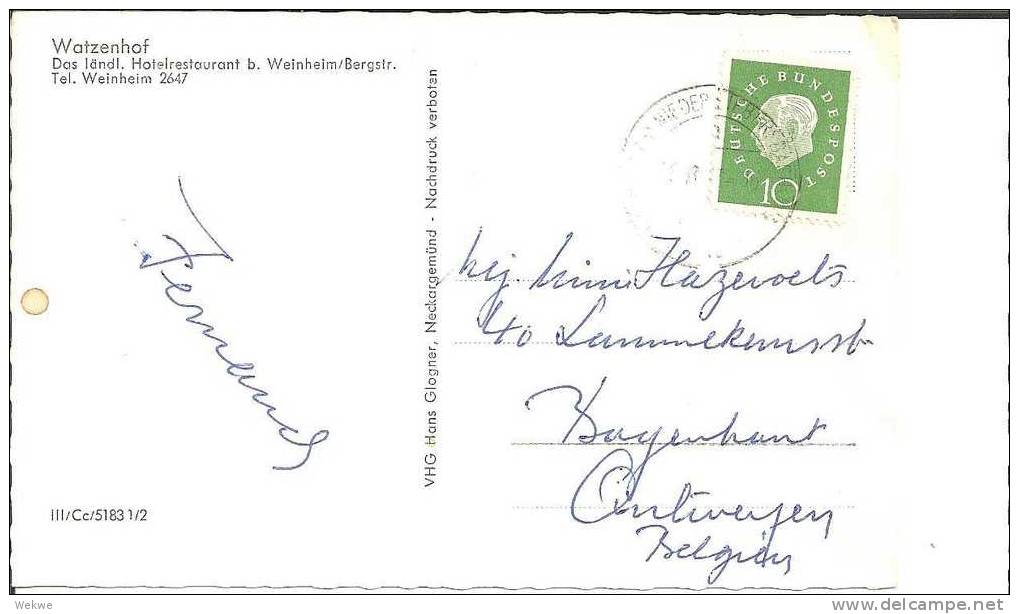 Watzenhof
Das ländl. Hotelrestaurant b. Weinheim/Bergstr.
Tel. Weinheim 2647
VHG Hans Glogner, Neckargemünd - Nachdruck verboten
DEUTSCHE BUNDESPOST
10
Fernand
Mimi Hazevoets
40
Antwerpen
Belgien
III/Cc/5183 1/2
Wekwe
delcampe.net